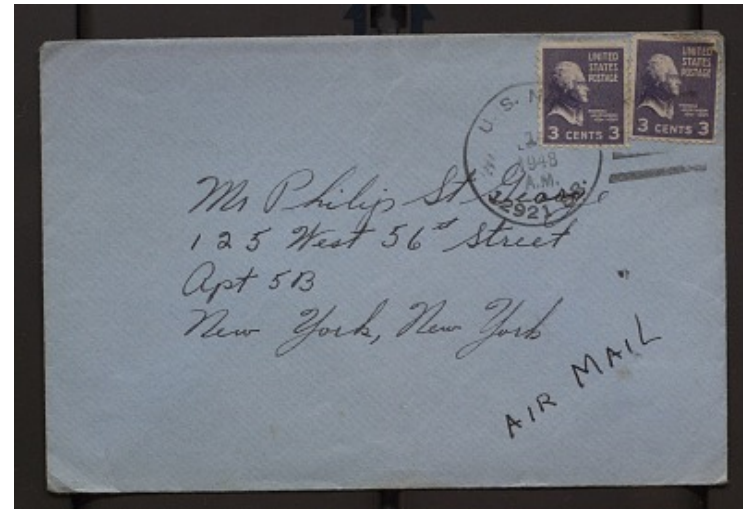 UNITED
STATES
POSTAGE
3 CENTS 3
UNITED
STATES
POSTAGE
3 CENTS 3
U. S. N
1948
A.M.
12921
Mr Philip St George
125 West 56st Street
Apt 5B
New York, New York
AIR MAIL